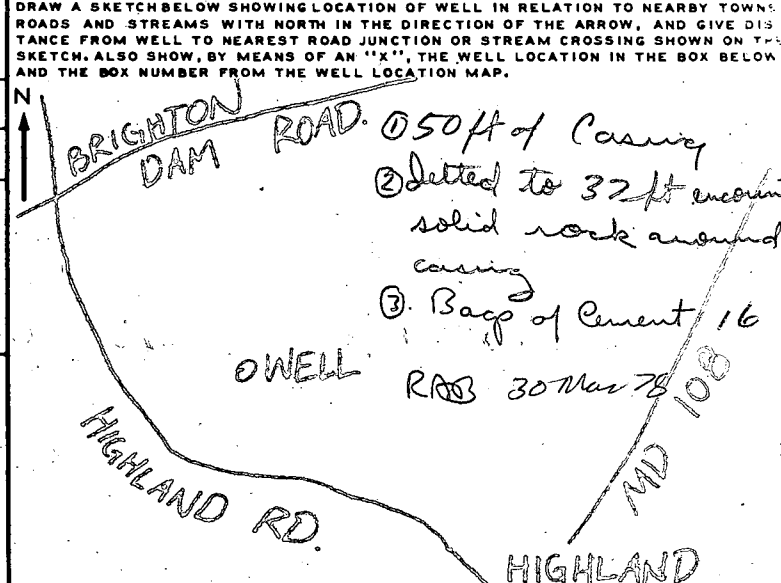 DRAW A SKETCH BELOW SHOWING LOCATION OF WELL IN RELATION TO NEARBY TOWNS
ROADS AND STREAMS WITH NORTH IN THE DIRECTION OF THE ARROW, AND GIVE DIS
TANCE FROM WELL TO NEAREST ROAD JUNCTION OR STREAM CROSSING SHOWN ON THE
SKETCH. ALSO SHOW, BY MEANS OF AN "X", THE WELL LOCATION IN THE BOX BELOW
AND THE BOX NUMBER FROM THE WELL LOCATION MAP.
N
BRIGHTON
DAM ROAD.
① 50 ft of Casing
② Jetted to 32 ft encoun
solid rock around
casing
③. Bags of Cement 16
RAB 30 Mar 78
O WELL
HIGHLAND RD.
MD 108
HIGHLAND